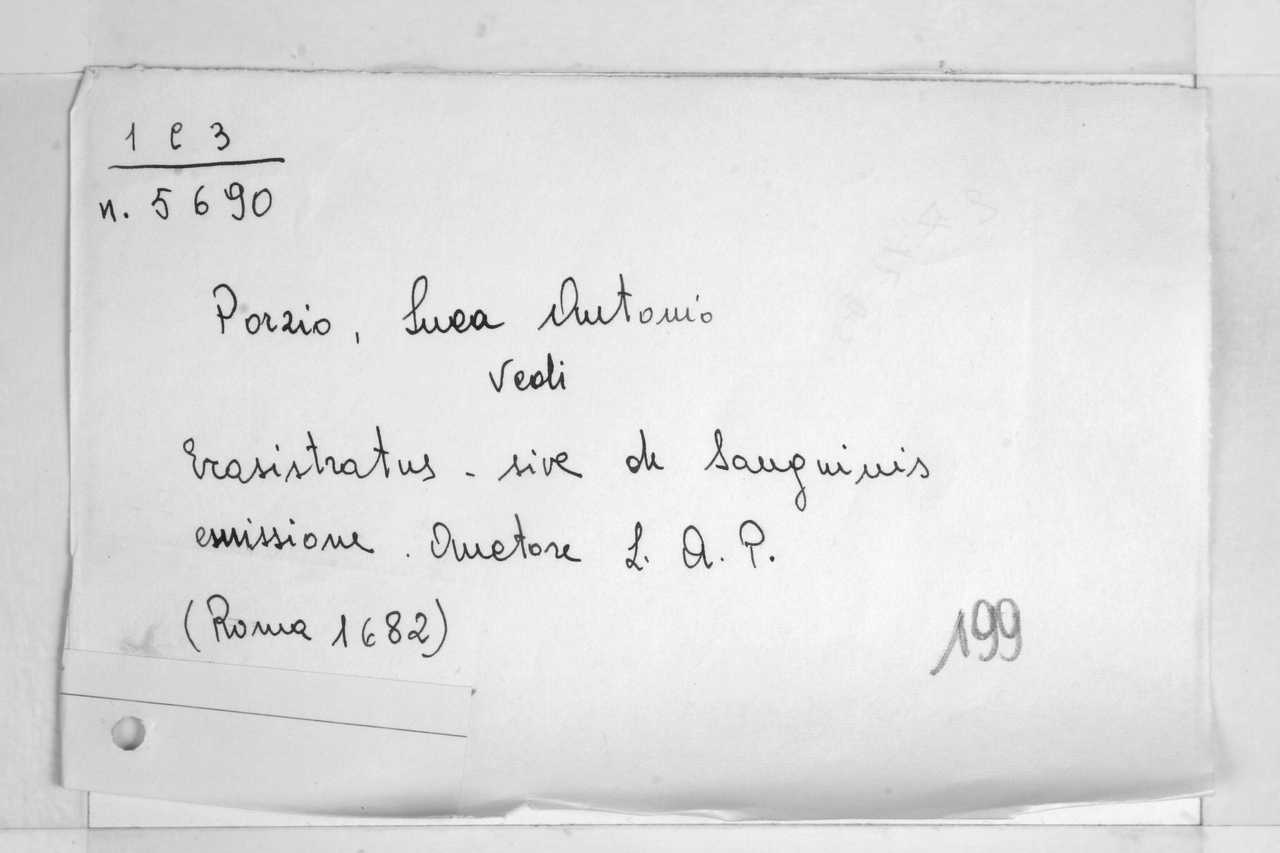 1 e 3
n. 5690
Porzio, Luca Antonio
Vedi
Erasistratus - sive de Sanguinis
emissione. Auctore L. A. P.
(Roma 1682)
199